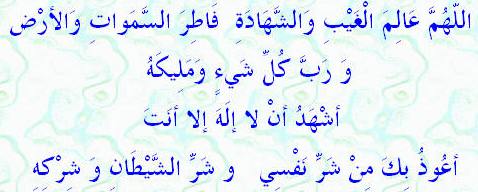 اللّهُمَّ عَالِمَ الْغَيْبِ وَالشَّهَادَةِ فَاطِر السَّمَوات وَالأرْض
وَ رَبَّ كُلِّ شَيءٍ وَمَلِيكَهُ
أشْهَدُ أنْ لا إلَهَ إلا أنَتَ
أعُوذُ بِكَ مِنْ شَرِّ نَفْسِي و شَرِّ الشَّيْطَانِ وَ شِرْكِهِ